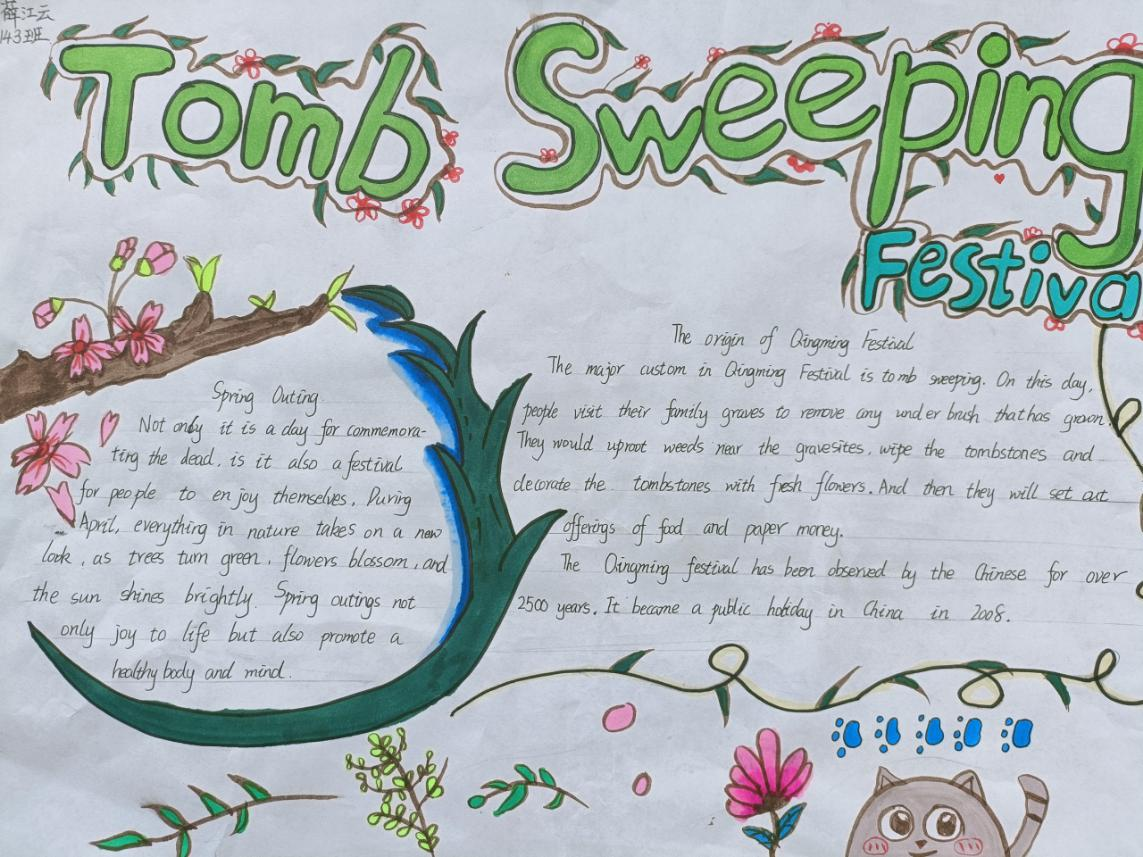 薛江云
143班
Tomb Sweeping
Festiva
Spring Outing
Not only it is a day for commemora-
ting the dead, is it also a festival
for people to enjoy themselves. During
April, everything in nature takes on a new
look, as trees turn green, flowers blossom, and
the sun shines brightly. Spring outings not
only joy to life but also promote a
healthy body and mind.
The origin of Qingming Festival
The major custom in Qingming Festival is tomb sweeping. On this day,
people visit their family graves to remove any under brush that has grown.
They would uproot weeds near the gravesites, wipe the tombstones and
decorate the tombstones with fresh flowers. And then they will set out
offerings of food and paper money.
The Qingming festival has been observed by the Chinese for over
2500 years. It became a public holiday in China in 2008.